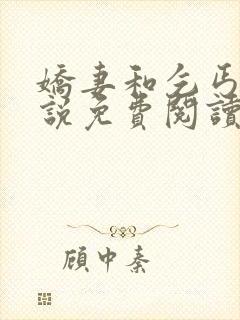 嬌妻和乞丐
說免費閱讀
顧中秦